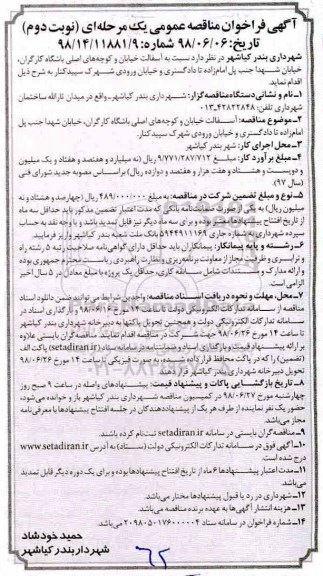 آگهی فراخوان مناقصه عمومی یک مرحله‌ای (نوبت دوم)
تاریخ: ۹۸/۰۶/۰۶ شماره: ۹۸/۱۴/۱۱۸۸۱/۹
شهرداری بندر کیاشهر در نظر دارد نسبت به آسفالت خیابان و کوچه‌های اصلی باشگاه کارگران،
خیابان شهدا جنب پل امام‌زاده تا دادگستری و خیابان ورودی شهرک سپیدکنار به شرح ذیل
اقدام نماید.
۱–نام و نشانی دستگاه مناقصه‌گزار: شهرداری بندر کیاشهر–واقع در میدان ثارالله ساختمان
شهرداری تلفن: ۴۳۸۲۲۸۴۸–۰۱۳
۲–موضوع مناقصه: آسفالت خیابان و کوچه‌های اصلی باشگاه کارگران، خیابان شهدا جنب پل
امام‌زاده تا دادگستری و خیابان ورودی شهرک سپیدکنار.
۳–محل اجرای کار: شهر بندر کیاشهر
۴–مبلغ برآورد کار: مبلغ ۹/۷۷۱/۲۸۷/۷۱۲ ریال (نه میلیارد و هفتصد و هفتاد و یک میلیون
و دویست و هشتاد و هفت هزار و هفتصد و دوازده ریال) براساس مصوبه جدید شورای فنی
(سال ۹۷).
۵–نوع و مبلغ تضمین شرکت در مناقصه: به مبلغ ۴۸۹/۰۰۰/۰۰۰ ریال (چهارصد و هشتاد و نه
میلیون ریال) به یکی از صورت ضمانت‌نامه بانکی که مدت اعتبار تضمین مذکور باید حداقل سه ماه
از تاریخ افتتاح پیشنهادها معتبر بوده و برای سه ماه دیگر نیز قابل تمدید باشد، و یا وجه نقد به حساب
سپرده شهرداری به شماره جاری ۵۹۴۴۹۱۱۱۶۹ بانک ملت شعبه بندر کیاشهر واریز فرمایید.
۶–رشته و پایه پیمانکار: پیمانکاران باید حداقل دارای گواهی‌نامه صلاحیت رتبه ۵ رشته راه
و ترابری و ظرفیت مجاز از معاونت برنامه‌ریزی و نظارت راهبردی ریاست محترم جمهوری بوده
و ارائه مدارک و مستندات شامل سابقه کاری، حداقل یک پروژه با مبلغ معادل در ۵ سال اخیر
الزامی است.
۷–محل، مهلت و نحوه دریافت اسناد مناقصه: واجدین شرایط می‌توانند ضمن دانلود اسناد
مناقصه از سامانه تدارکات الکترونیکی دولت تا ساعت ۱۴ مورخ ۹۸/۰۶/۱۶ و بارگذاری اسناد در
سامانه تدارکات الکترونیکی دولت و همچنین تحویل پاکتها به دبیرخانه شهرداری بندر کیاشهر
تا ساعت ۱۴ مورخ ۹۸/۰۶/۲۶ جهت شرکت در مناقصه اقدام نمایند. مناقصه‌گران بایستی علاوه
بر ارائه پیشنهاد قیمت و بارگذاری اسناد و ضمانت‌نامه در سامانه ستاد (setadiran.ir) پاکت الف
(تضمین) را که در پاکت محافظ قرار داده شده، به صورت فیزیکی تا ساعت ۱۴ مورخ ۹۸/۰۶/۲۶
تحویل دبیرخانه شهرداری بندر کیاشهر قرار دهند.
۸–تاریخ بازگشایی پاکات و پیشنهاد قیمت: پیشنهادهای واصله در ساعت ۹ صبح روز
چهارشنبه مورخ ۹۸/۰۶/۲۷ در کمیسیون مناقصه شهرداری بندر کیاشهر باز و خوانده می‌شود،
حضور یک نفر نماینده از طرف هر یک از پیشنهاددهندگان در جلسه افتتاح پیشنهادها با معرفی‌نامه
مجاز می‌باشد.
۹–مناقصه‌گران بایستی در سامانه setadiran.ir ثبت‌نام کرده باشند.
۱۰–آگهی فوق در سامانه تدارکات الکترونیکی دولت (ستاد) به آدرس www.setadiran.ir
درج شده است
۱۱–مدت اعتبار پیشنهادها ۶ ماه از تاریخ افتتاح پیشنهادها بوده و برای یک دوره دیگر قابل تمدید
می‌باشد.
۱۲–شهرداری در رد یا قبول پیشنهادها مختار می‌باشد.
۱۳–هزینه انتشار آگهی‌ها به عهده برنده مناقصه می‌باشد.
۱۴–شماره فراخوان در سامانه ستاد ۲۰۹۸۰۵۰۱۷۶۰۰۰۰۰۴ می‌باشد.
حمید خودشاد
شهردار بندر کیاشهر